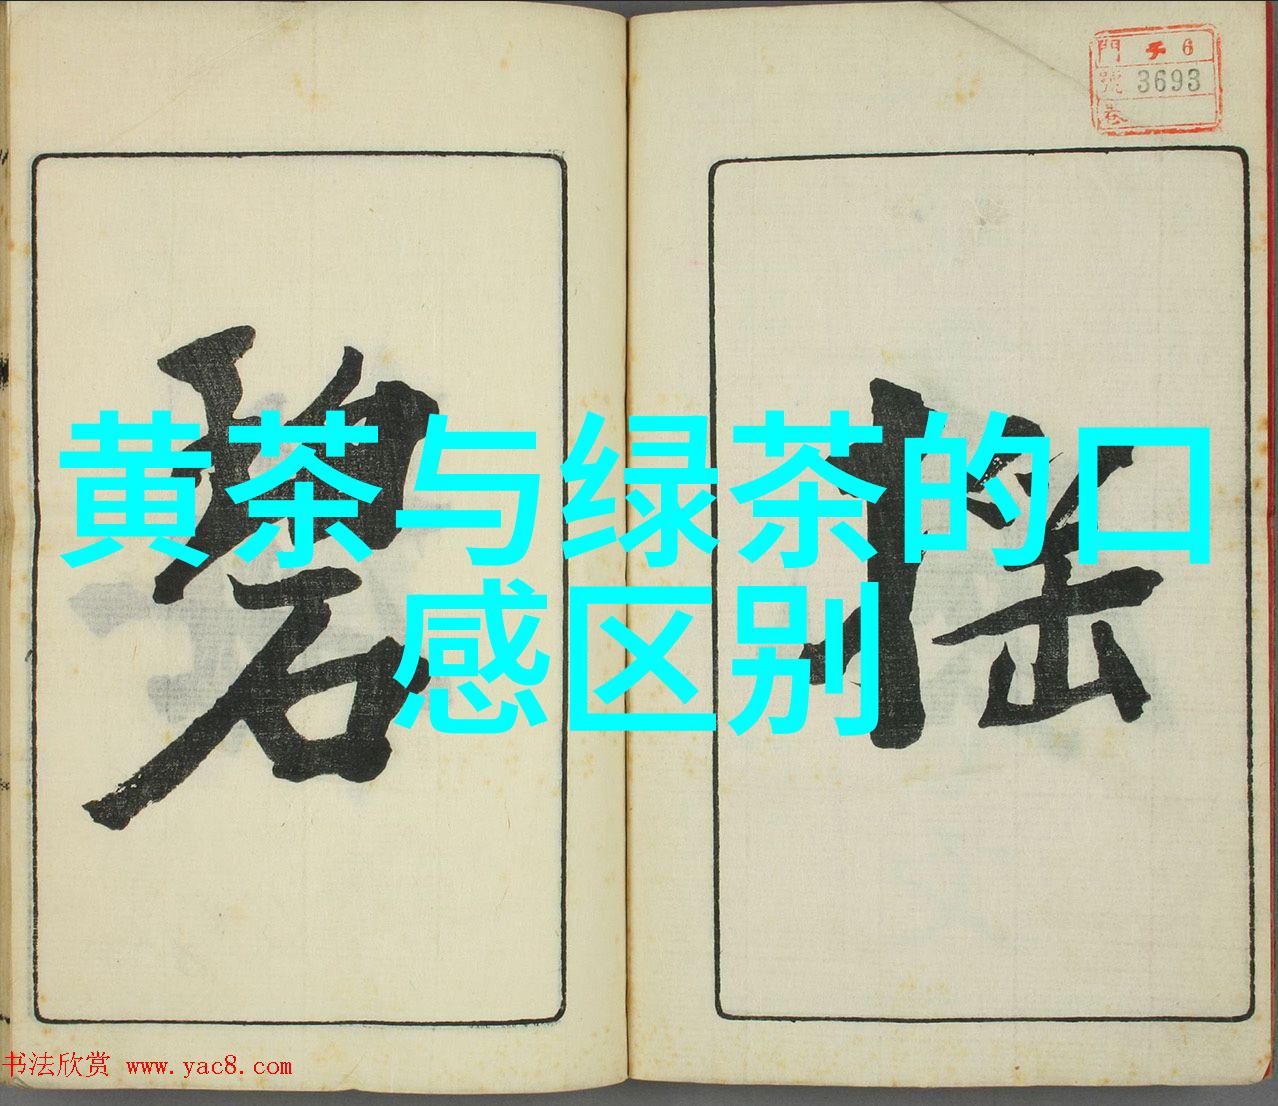 門 チ 6
號 3693
卷
黄茶与绿茶的口
感区别
摇
碧
书法欣赏 www.yac8.com